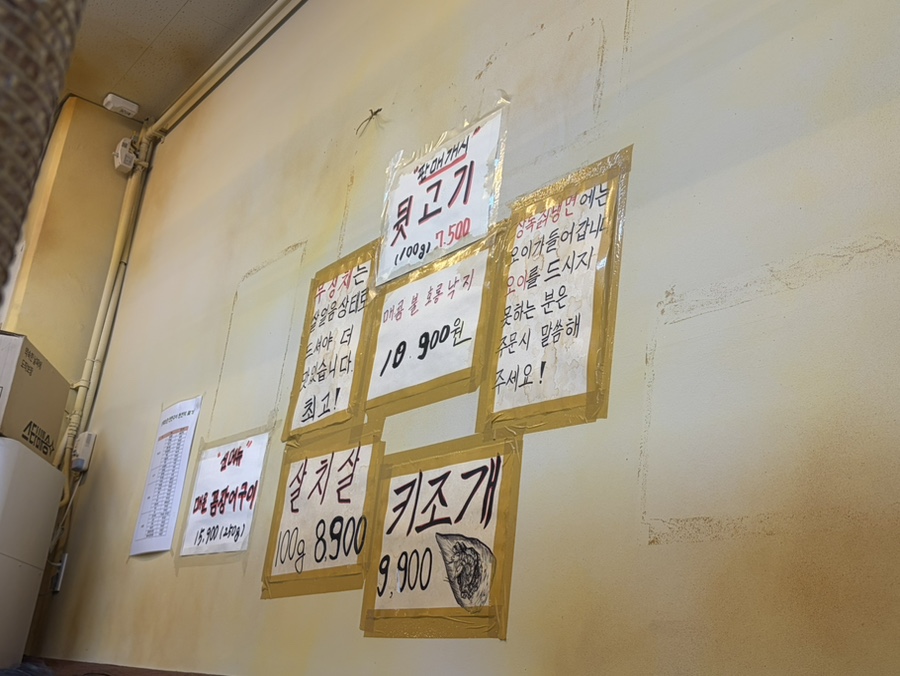 "판매개시"
뒷고기
(100g) 7.500
우삼겹는
살얼음상태로
드셔야 더
맛있습니다.
최고!
매콤 불 호롱낙지
10.900원
에는
오이가들어갑니다
오이를 드시지
못하는 분은
주문시 말씀해
주세요!
"신메뉴"
매운 곰장어구이
15,900 (250g)
살치살
100g 8.900
키조개
9,900